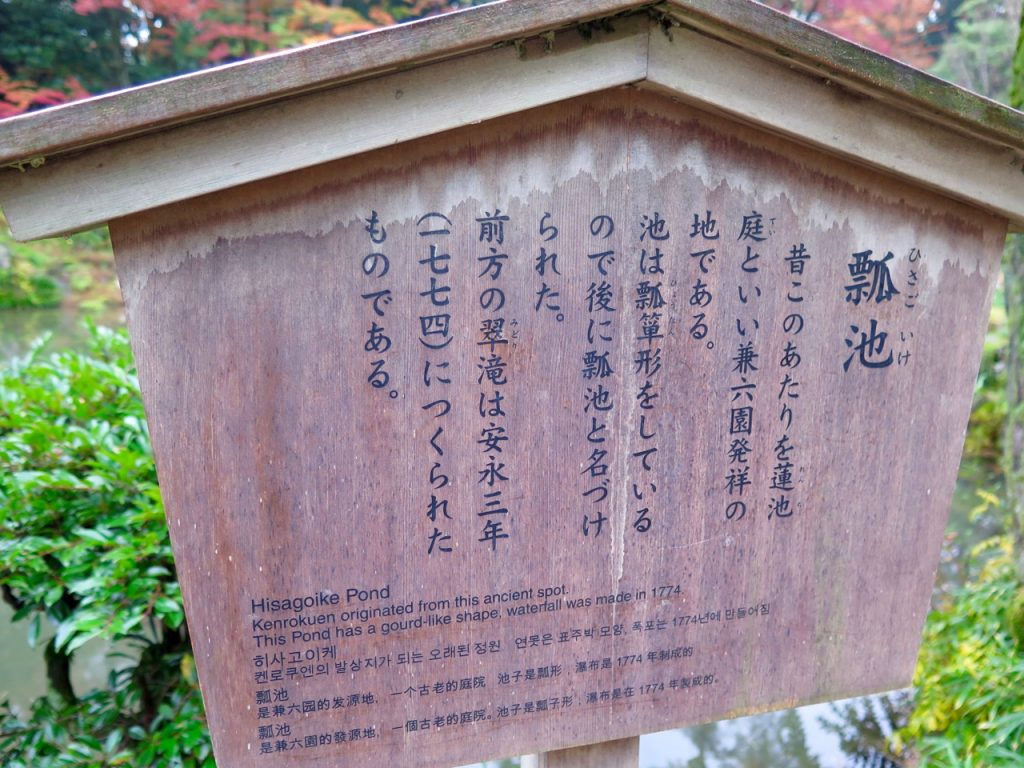 瓢池
ひさご いけ
昔このあたりを蓮池
庭といい兼六園発祥の
てい
地である。
池は瓢箪形をしている
ので後に瓢池と名づけ
られた。
前方の翠滝は安永三年
みど
(一七七四)につくられた
ものである。
Hisagoike Pond
Kenrokuen originated from this ancient spot.
This Pond has a gourd-like shape, waterfall was made in 1774.
히사고이케
켄로쿠엔의 발상지가 되는 오래된 정원 연못은 표주박 모양, 폭포는 1774년에 만들어짐
瓢池
是兼六园的发源地, 一个古老的庭院 池子是瓢形, 瀑布是 1774 年制成的
瓢池
是兼六園的發源地, 一個古老的庭院。池子是瓢子形, 瀑布是在 1774 年製成的。